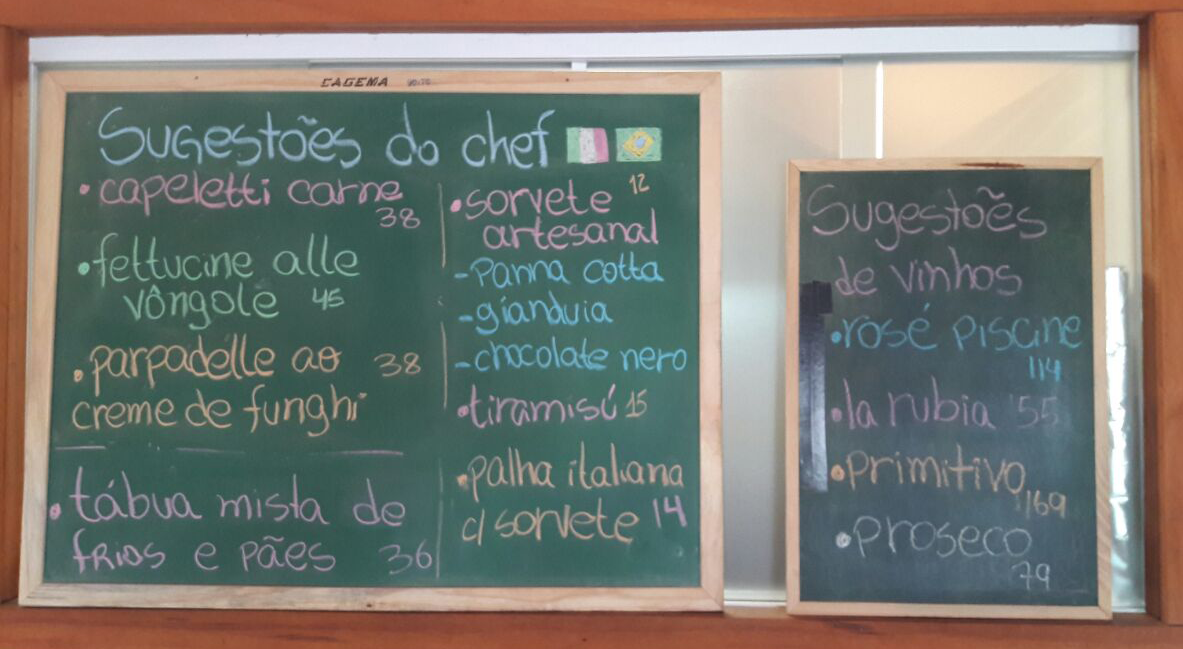 CAGEMA
Sugestões do chef
• capeletti carne
38
• fettucine alle
vôngole 45
• parpadelle ao 38
creme de funghi
• tábua mista de
frios e pães 36
• sorvete 12
artesanal
- Panna cotta
- gianduia
- chocolate nero
• tiramisú 15
• palha italiana
c/ sorvete 14
Sugestões
de vinhos
• rosé piscine
114
• la rubia 55
• primitivo
169
• proseco
79